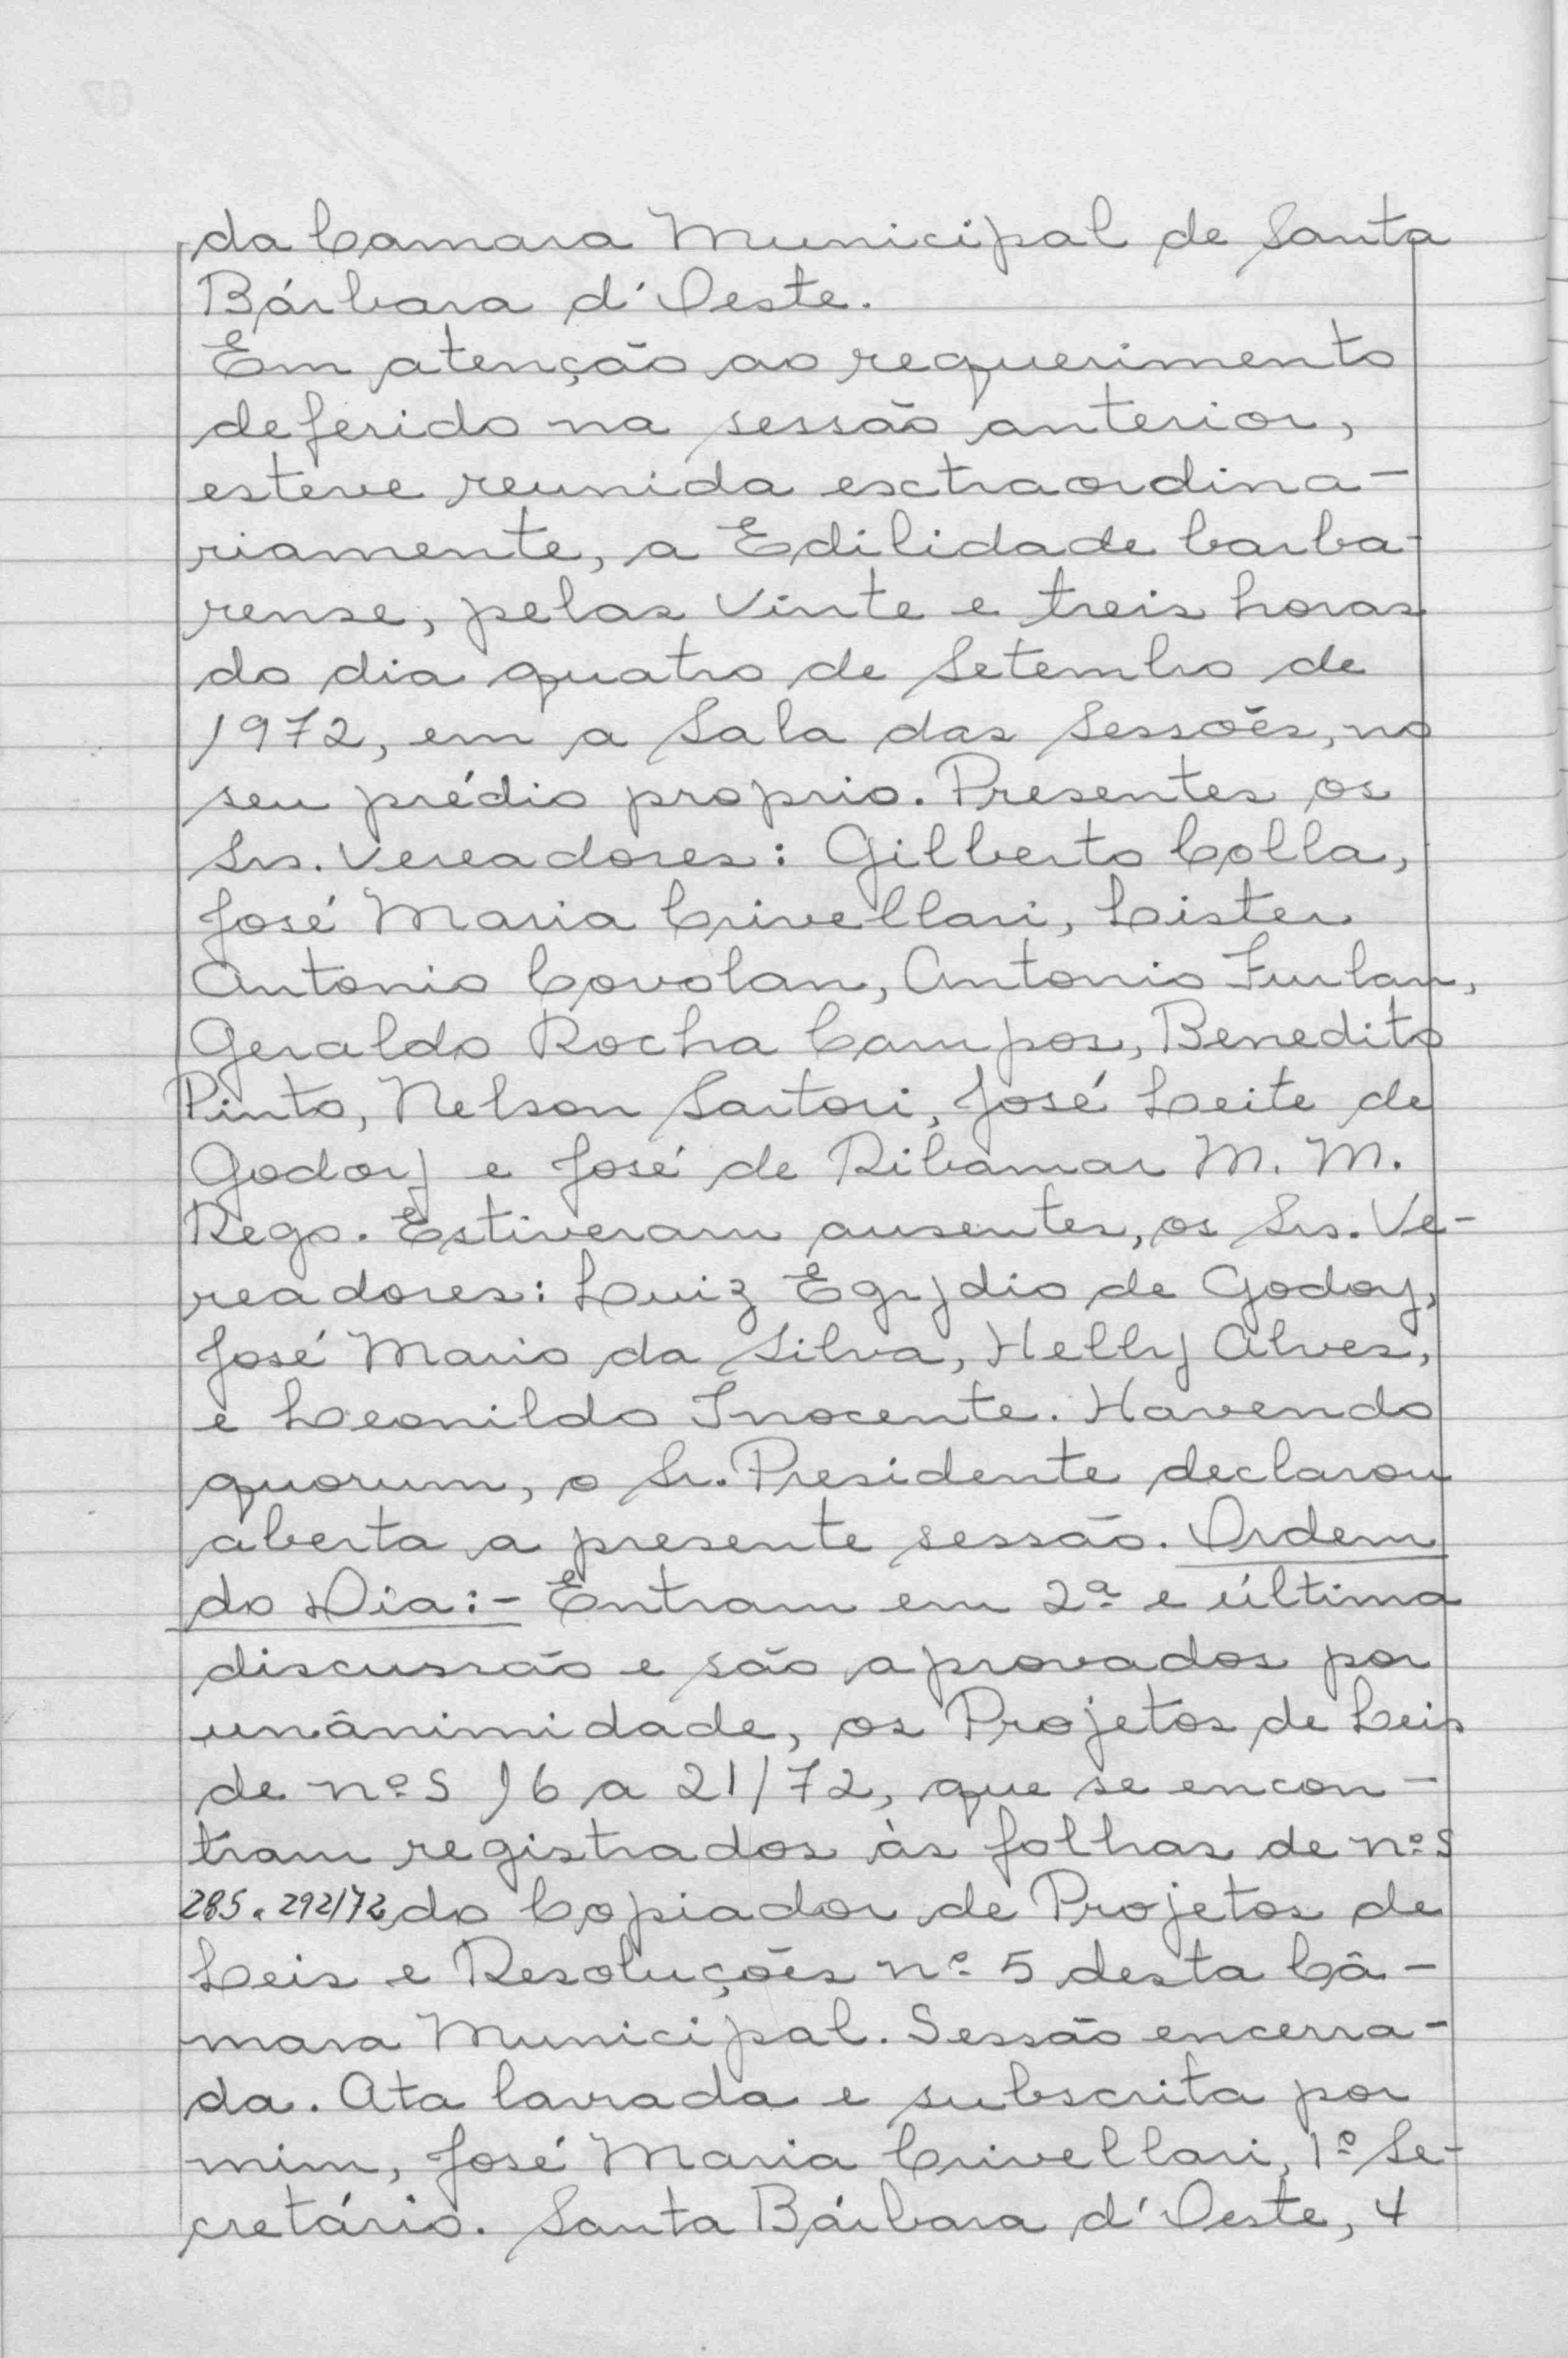 da Camara Municipal de Santa
Bárbara d'Oeste.
Em atenção ao requerimento
deferido na sessão anterior,
esteve reunida extraordina-
riamente, a Edilidade barba-
rense, pelas vinte e treis horas
do dia quatro de Setembro de
1972, em a Sala das Sessões, no
seu prédio proprio. Presentes os
Srs. Vereadores: Gilberto Colla,
José Maria Crivellari, Lister
Antonio Covolan, Antonio Furlan,
Geraldo Rocha Campos, Benedito
Pinto, Nelson Sartori, José Leite de
Godoy e José de Ribamar M. M.
Rego. Estiveram ausentes, os Srs. Ve-
readores: Luiz Egydio de Godoy,
José Mario da Silva, Helly Alves,
e Leonildo Inocente. Havendo
quorum, o Sr. Presidente declarou
aberta a presente sessão. Ordem
do Dia:- Entram em 2ª e última
discussão e são aprovados por
unânimidade, os Projetos de Leis
de nºs 16 a 21/72, que se encon-
tram registrados às folhas de nºs
285 a 292/72 do Copiador de Projetos de
Leis e Resoluções nº 5 desta Câ-
mara Municipal. Sessão encerra-
da. Ata lavrada e subscrita por
mim, José Maria Crivellari, 1º Se-
cretário. Santa Bárbara d'Oeste, 4